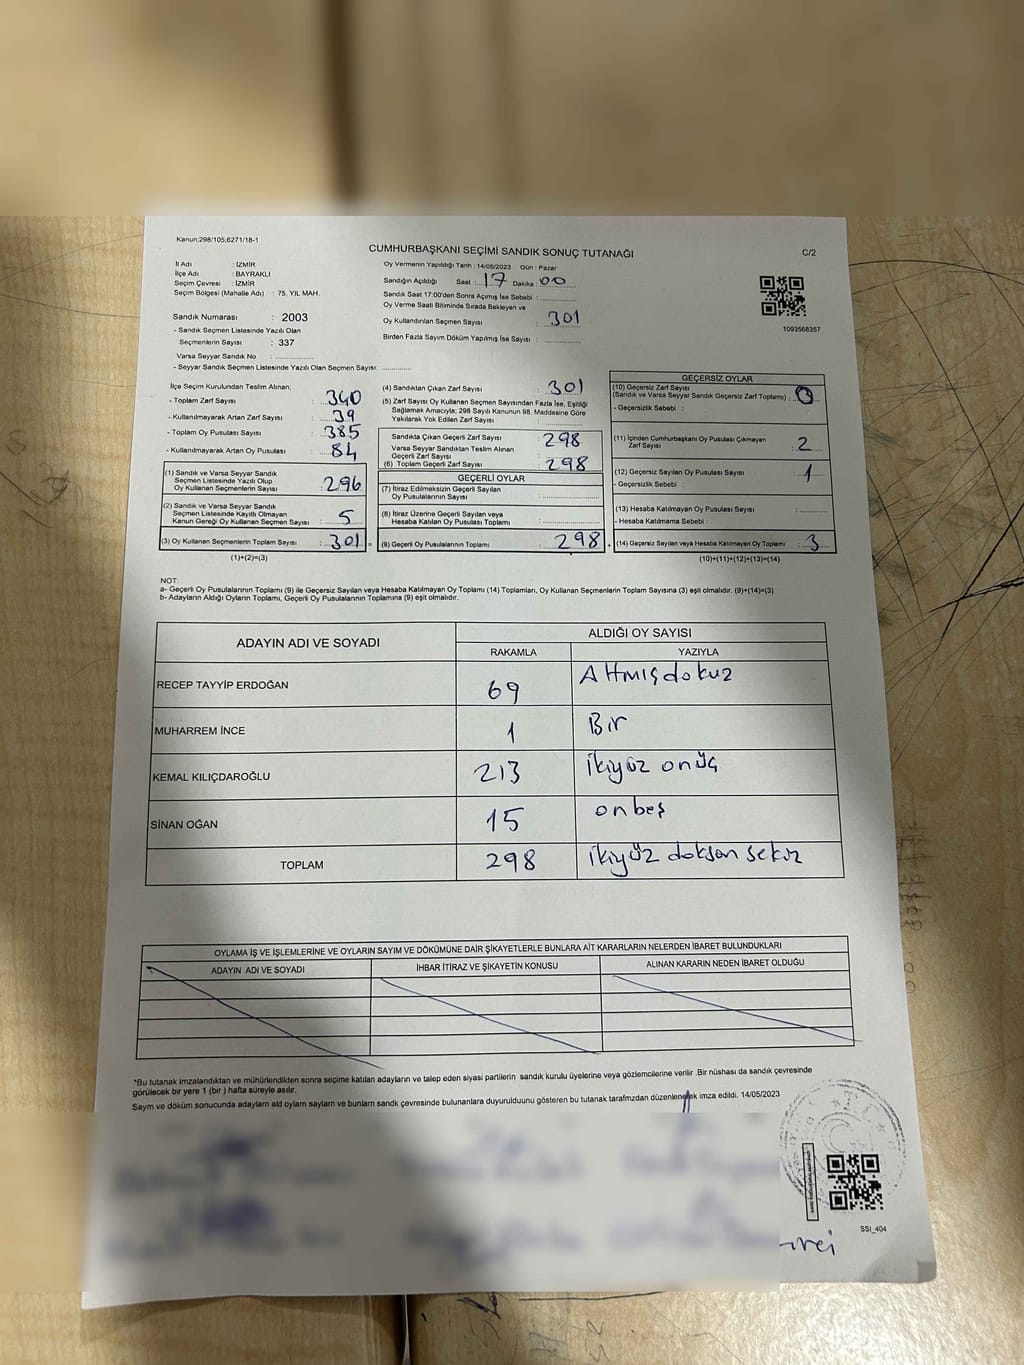 Kanun;298/105;6271/18-1
CUMHURBAŞKANI SEÇİMİ SANDIK SONUÇ TUTANAĞI
C/2
İl Adı : İZMİR
İlçe Adı : BAYRAKLI
Seçim Çevresi : İZMİR
Seçim Bölgesi (Mahalle Adı) : 75. YIL MAH.
Sandık Numarası : 2003
- Sandık Seçmen Listesinde Yazılı Olan
Seçmenlerin Sayısı : 337
Varsa Seyyar Sandık No :
- Seyyar Sandık Seçmen Listesinde Yazılı Olan Seçmen Sayısı:
Oy Vermenin Yapıldığı Tarih : 14/05/2023 Gün : Pazar
Sandığın Açıldığı Saat : 17 Dakika : 00
Sandık Saat 17:00'den Sonra Açımış İse Sebebi :
Oy Verme Saati Bitiminde Sırada Bekleyen ve
Oy Kullandırılan Seçmen Sayısı : 301
Birden Fazla Sayım Döküm Yapılmış İse Sayısı :
1093566357
İlçe Seçim Kurulundan Teslim Alınan:
- Toplam Zarf Sayısı : 340
- Kullanılmayarak Artan Zarf Sayısı : 39
- Toplam Oy Pusulası Sayısı : 385
- Kullanılmayarak Artan Oy Pusulası : 84
(1) Sandık ve Varsa Seyyar Sandık
Seçmen Listesinde Yazılı Olup
Oy Kullanan Seçmenlerin Sayısı : 296
(2) Sandık ve Varsa Seyyar Sandık
Seçmen Listesinde Kayıtlı Olmayan
Kanun Gereği Oy Kullanan Seçmen Sayısı : 5
(3) Oy Kullanan Seçmenlerin Toplam Sayısı : 301 =
(1)+(2)=(3)
(4) Sandıktan Çıkan Zarf Sayısı : 301
(5) Zarf Sayısı Oy Kullanan Seçmen Sayısından Fazla İse, Eşitliği
Sağlamak Amacıyla; 298 Sayılı Kanunun 98. Maddesine Göre
Yakılarak Yok Edilen Zarf Sayısı :
Sandıkta Çıkan Geçerli Zarf Sayısı : 298
Varsa Seyyar Sandıktan Teslim Alınan
Geçerli Zarf Sayısı :
(6) Toplam Geçerli Zarf Sayısı : 298
GEÇERLİ OYLAR
(7) İtiraz Edilmeksizin Geçerli Sayılan
Oy Pusulalarının Sayısı :
(8) İtiraz Üzerine Geçerli Sayılan veya
Hesaba Katılan Oy Pusulası Toplamı :
(9) Geçerli Oy Pusulalarının Toplamı : 298
GEÇERSİZ OYLAR
(10) Geçersiz Zarf Sayısı
(Sandık ve Varsa Seyyar Sandık Geçersiz Zarf Toplamı) : 0
- Geçersizlik Sebebi :
(11) İçinden Cumhurbaşkanı Oy Pusulası Çıkmayan
Zarf Sayısı : 2
(12) Geçersiz Sayılan Oy Pusulası Sayısı : 1
- Geçersizlik Sebebi :
(13) Hesaba Katılmayan Oy Pusulası Sayısı :
- Hesaba Katılmama Sebebi :
(14) Geçersiz Sayılan veya Hesaba Katılmayan Oy Toplamı : 3
(10)+(11)+(12)+(13)=(14)
NOT:
a- Geçerli Oy Pusulalarının Toplamı (9) ile Geçersiz Sayılan veya Hesaba Katılmayan Oy Toplamı (14) Toplamları, Oy Kullanan Seçmenlerin Toplam Sayısına (3) eşit olmalıdır. (9)+(14)=(3)
b- Adayların Aldığı Oyların Toplamı, Geçerli Oy Pusulalarının Toplamına (9) eşit olmalıdır.
ADAYIN ADI VE SOYADI ALDIĞI OY SAYISI
RAKAMLA YAZIYLA
RECEP TAYYİP ERDOĞAN 69 Altmışdokuz
MUHARREM İNCE 1 Bir
KEMAL KILIÇDAROĞLU 213 ikiyüz onüç
SİNAN OĞAN 15 onbeş
TOPLAM 298 ikiyüz doksan sekiz
OYLAMA İŞ VE İŞLEMLERİNE VE OYLARIN SAYIM VE DÖKÜMÜNE DAİR ŞİKAYETLERLE BUNLARA AİT KARARLARIN NELERDEN İBARET BULUNDUKLARI
ADAYIN ADI VE SOYADI İHBAR İTİRAZ VE ŞİKAYETİN KONUSU ALINAN KARARIN NEDEN İBARET OLDUĞU
*Bu tutanak imzalandıktan ve mühürlendikten sonra seçime katılan adayların ve talep eden siyasi partilerin sandık kurulu üyelerine veya gözlemcilerine verilir .Bir nüshası da sandık çevresinde
görülecek bir yere 1 (bir ) hafta süreyle asılır.
Sayım ve döküm sonucunda adaylarn ald oylarn saylarn ve bunlarn sandk çevresinde bulunanlara duyurulduunu gösteren bu tutanak tarafmzdan düzenlenerek imza edildi. 14/05/2023
SSI_404